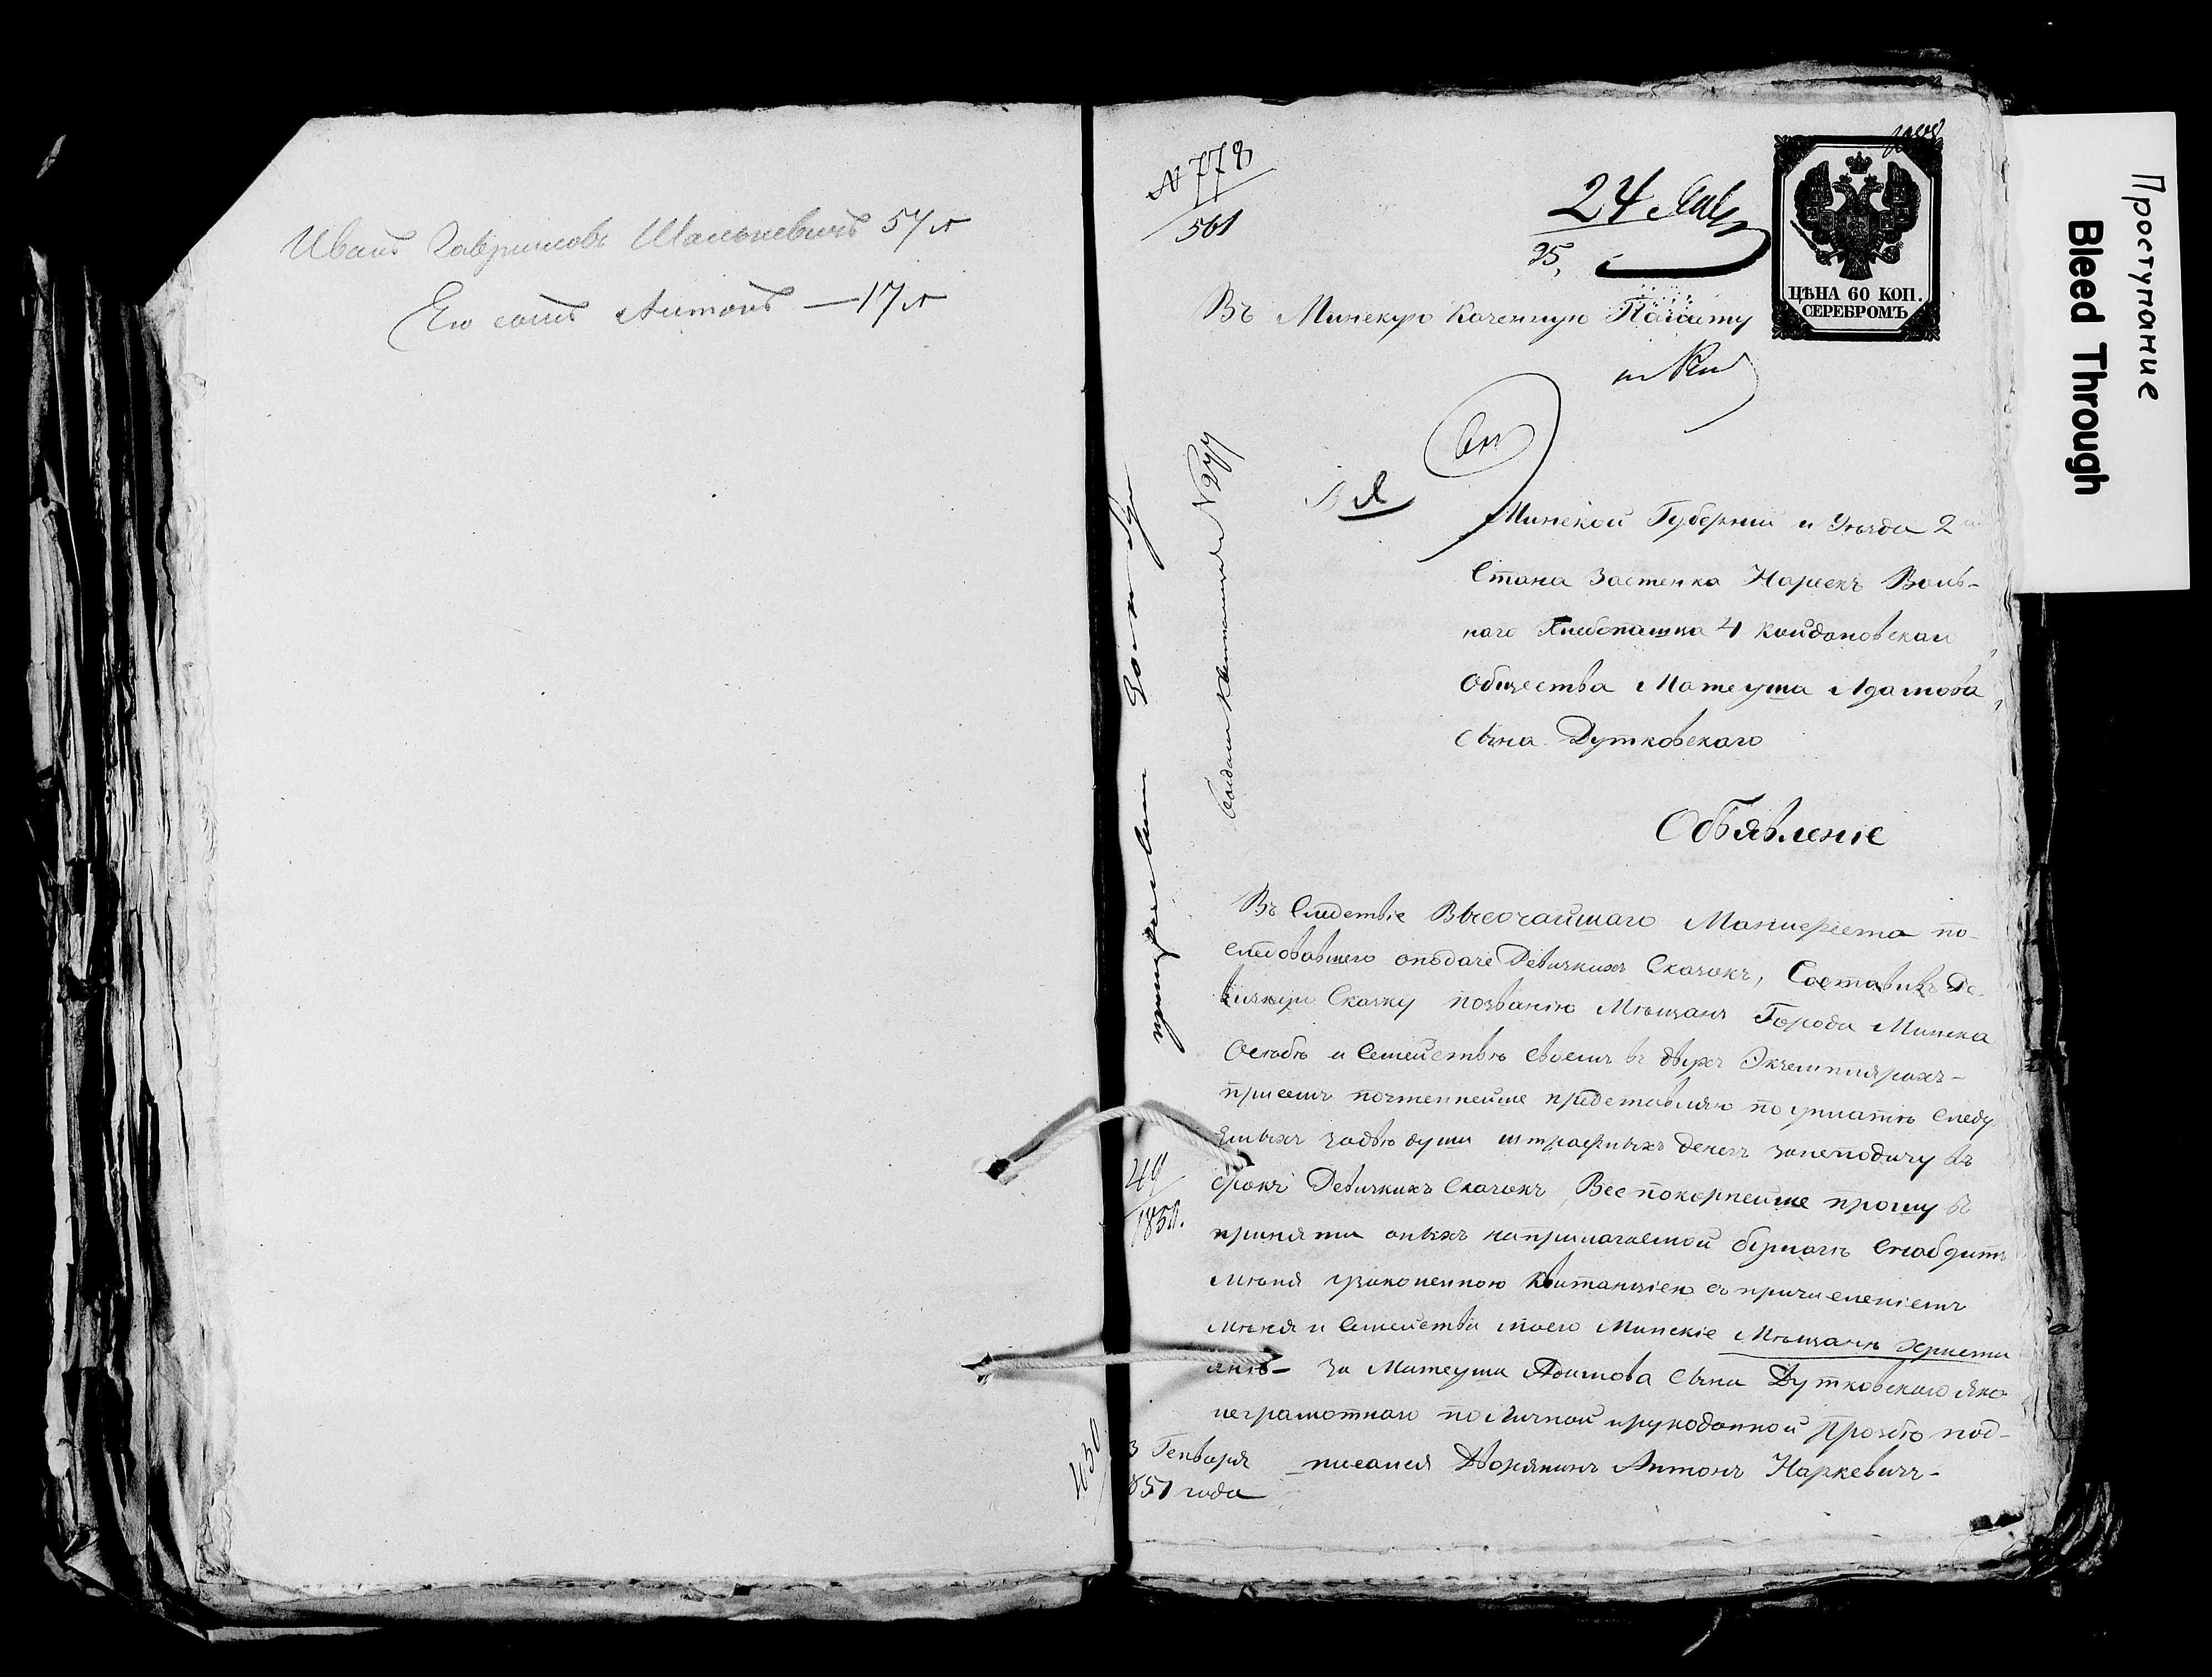 Иванъ Гавриловъ Шалькевичъ 57 л
Его сынъ Антонъ — 17 л
N 778
561
24 Янв
25,
ЦѢНА 60 КОП.
СЕРЕБРОМЪ
Въ Минскую Казенную Палату
Минской Губерніи и Уѣзда 2
Стана Застенка Нареекъ Воль-
наго Хлебопашца 4 Койдановскаго
Общества Матеуша Адамова
Сына Дутковскаго
Объявленіе
Въ Следствіе Высочайшаго Манифеста по-
следовавшего оподаче Ревизкихъ Сказокъ, Составивъ Ре-
визкую Сказку позванію Мѣщанъ Города Минска
Осебѣ и Семействѣ своемъ въ двухъ Экземплярахъ-
присемъ почтеннейше представляю по уплатѣ следу
емыхъ задвѣ души штрафныхъ денегъ занеподачу въ
срокъ Ревизкихъ Сказокъ, Всепокорнейше прошу въ
приняти оныхъ наприлагаемой бумагѣ Снабдить
Мѣня узаконенною Квитанціею съ причисленіемъ
Мѣня и Семейства моего Минскіе Мѣщанѣ Христи
янѣ- За Матеуша Адамова Сына Дутковскаго яко
неграмотнаго поЛичной ирукоданной прозбѣ под-
писался Дворянинъ Антонъ Наркевичъ-
3 Генваря
1851 года
49
1850.
N 277
Проступание
Bleed Through